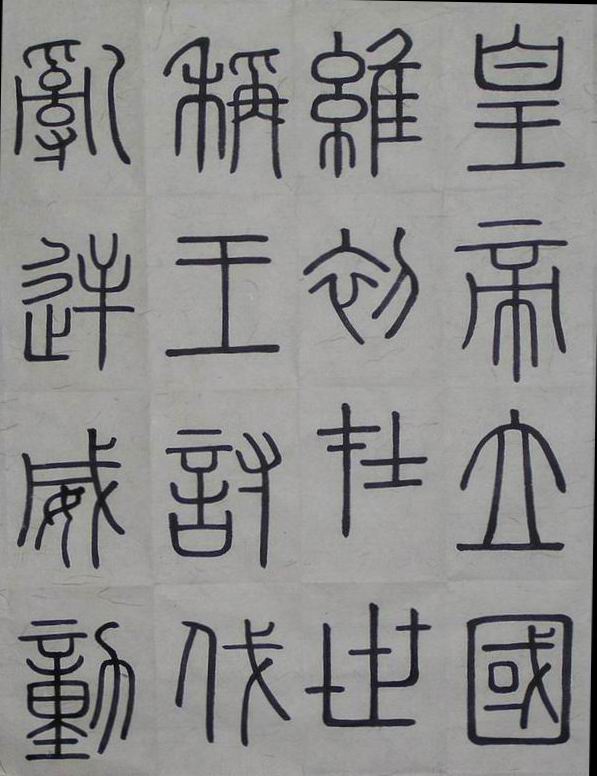 皇帝立國
維初在世
稱王討伐
亂逆威動